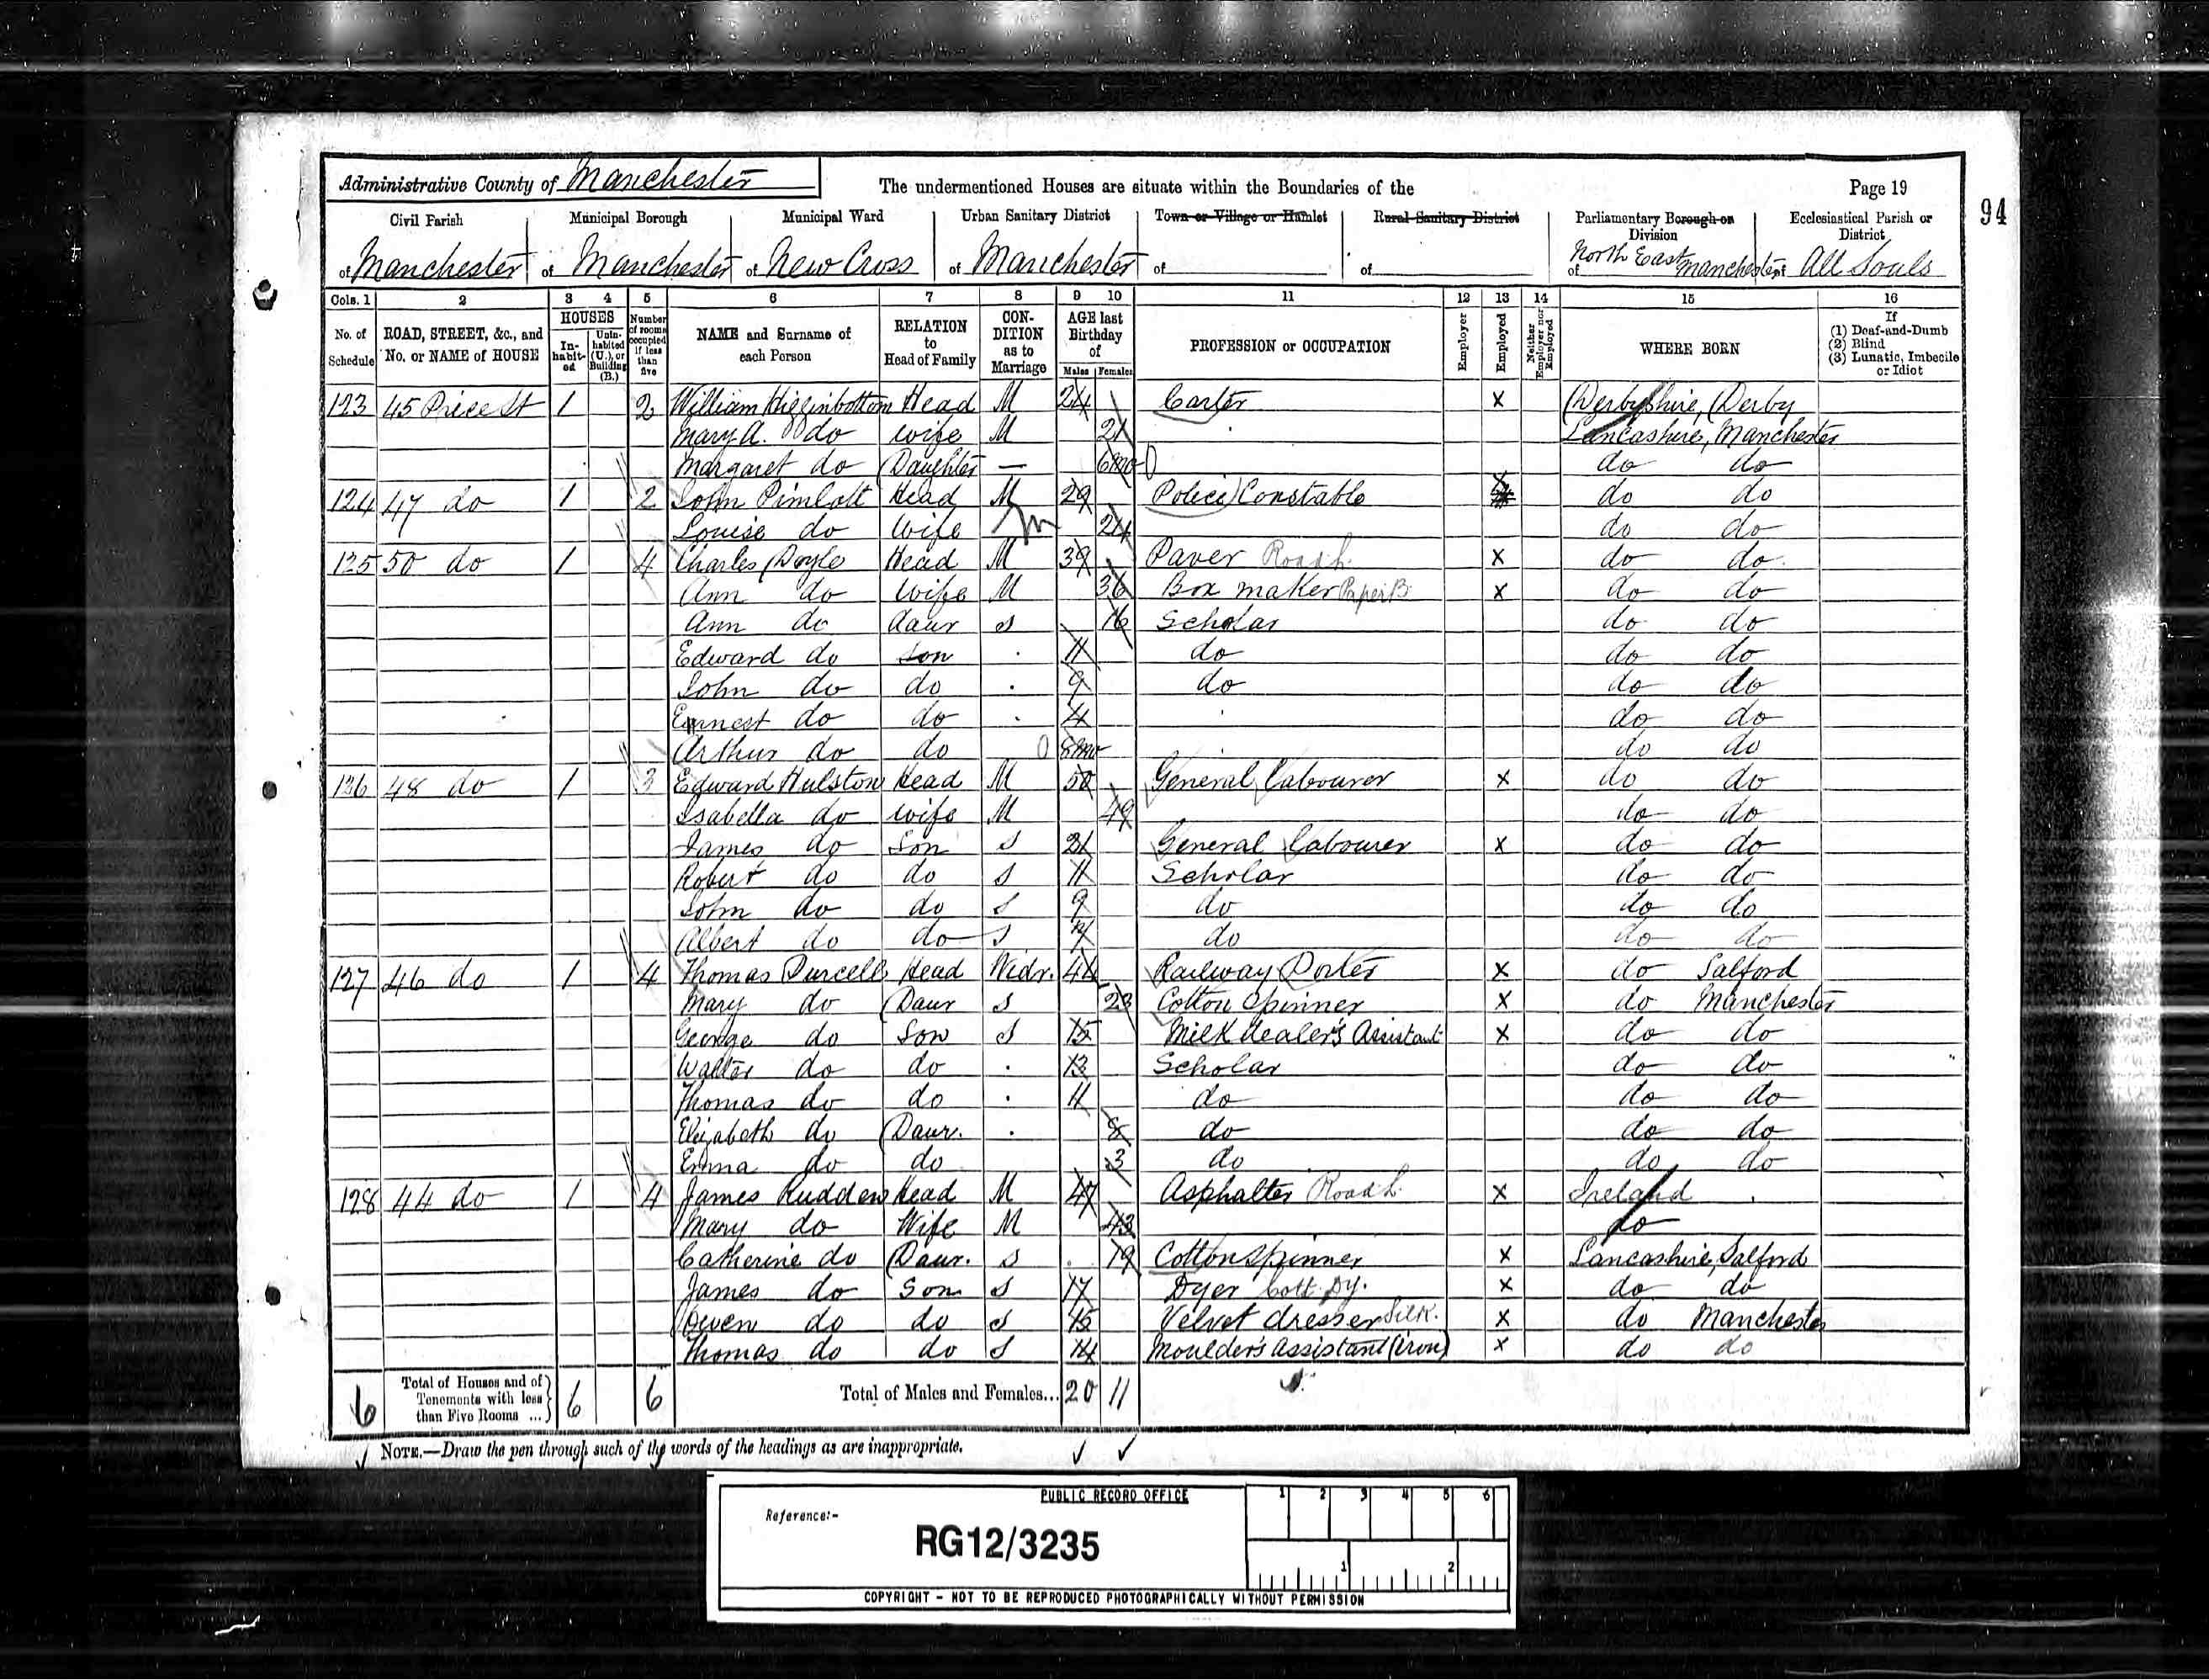 Administrative County of Manchester
The undermentioned Houses are situate within the Boundaries of the
Page 19
94
Civil Parish
Municipal Borough
Municipal Ward
Urban Sanitary District
Town or Village or Hamlet
Rural Sanitary District
Parliamentary Borough or Division
Ecclesiastical Parish or District
of Manchester of Manchester of New Cross of Manchester of of of North East Manchester of All Souls
Cols. 1 2 3 4 5 6 7 8 9 10 11 12 13 14 15 16
No. of Schedule
ROAD, STREET, &c., and No. or NAME of HOUSE
HOUSES
In-habit-ed
Unin-habited (U.), or Building (B.)
Number of rooms occupied if less than five
NAME and Surname of each Person
RELATION to Head of Family
CON-DITION as to Marriage
AGE last Birthday of
Males Females
PROFESSION or OCCUPATION
Employer
Employed
Neither Employer nor Employed
WHERE BORN
If
(1) Deaf-and-Dumb
(2) Blind
(3) Lunatic, Imbecile or Idiot
123 45 Price St 1 2 William Higginbottom Head M 24 Carter X Derbyshire, Derby
Mary A. do Wife M 21 Lancashire, Manchester
Margaret do Daughter — 6mo do do
124 47 do 1 2 John Pimlott Head M 29 Police Constable X do do
Louise do Wife M 24 do do
125 50 do 1 4 Charles Doyle Head M 39 Paver Road L. X do do
Ann do Wife M 36 Box maker Paper B. X do do
Ann do daur S 16 Scholar do do
Edward do Son 11 do do do
John do do 9 do do do
Ernest do do 4 do do
Arthur do do 8mo do do
126 48 do 1 3 Edward Hulston Head M 50 General Labourer X do do
Isabella do Wife M 49 do do
James do Son S 21 General Labourer X do do
Robert do do S 11 Scholar do do
John do do S 9 do do do
Albert do do S 7 do do do
127 46 do 1 4 Thomas Purcell Head Widr. 44 Railway Porter X do Salford
Mary do Daur S 23 Cotton Spinner X do Manchester
George do Son S 15 Milk dealer's Assistant X do do
Walter do do 13 Scholar do do
Thomas do do 11 do do do
Elizabeth do Daur. 8 do do do
Emma do do 3 do do do
128 44 do 1 4 James Rudden Head M 47 Asphalter Road L. X Ireland
Mary do Wife M 43 do
Catherine do Daur. S 19 Cotton Spinner X Lancashire, Salford
James do Son S 17 Dyer Cott. Dy. X do do
Owen do do S 15 Velvet dresser Silk. X do Manchester
Thomas do do S 14 Moulder's Assistant (iron) X do do
6 Total of Houses and of Tenements with less than Five Rooms ... 6 6 Total of Males and Females... 20 11
NOTE.—Draw the pen through such of the words of the headings as are inappropriate.
PUBLIC RECORD OFFICE
1 2 3 4 5 6
Reference:-
RG12/3235
1 2
COPYRIGHT - NOT TO BE REPRODUCED PHOTOGRAPHICALLY WITHOUT PERMISSION